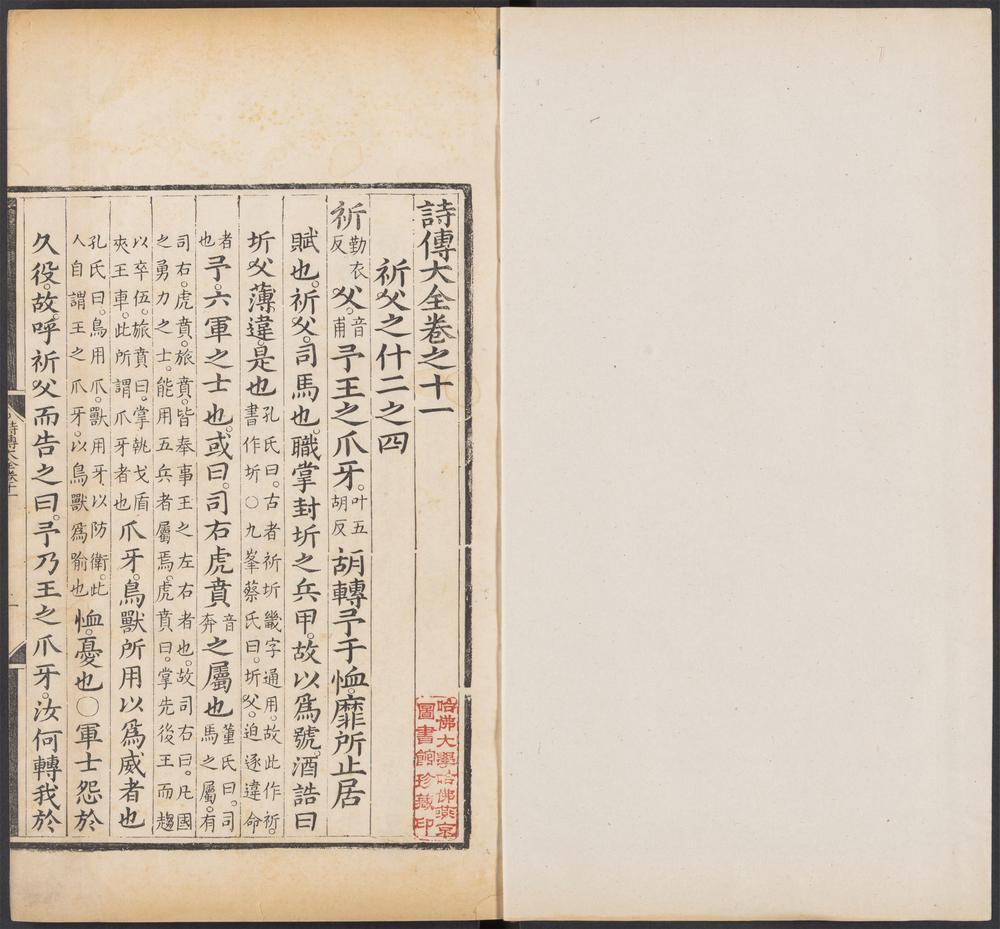 詩傳大全卷之十一
祈父之什二之四
祈勤衣反父音甫。予王之爪牙。叶五胡反胡轉予于恤。靡所止居
賦也。祈父。司馬也。職掌封圻之兵甲。故以爲號。酒誥曰
圻父薄違。是也孔氏曰。古者祈圻畿字通用。故此作祈。書作圻○九峯蔡氏曰。圻父。迫逐違命
者也予。六軍之士也。或曰。司右虎賁音奔之屬也董氏曰。司馬之屬。有
司右。虎賁。旅賁。皆奉事王之左右者也。故司右曰。凡國之勇力之士。能用五兵者屬焉。虎賁曰。掌先後王而趨
以卒伍。旅賁曰。掌執戈盾夾王車。此所謂爪牙者也爪牙。鳥獸所用以爲威者也
孔氏曰。鳥用爪。獸用牙。以防衛。此人自謂王之爪牙。以鳥獸爲喻也恤。憂也○軍士怨於
久役。故呼祈父而告之曰。予乃王之爪牙。汝何轉我於
詩傳大全卷十一
一
哈佛大學哈佛燕京圖書館珍藏印